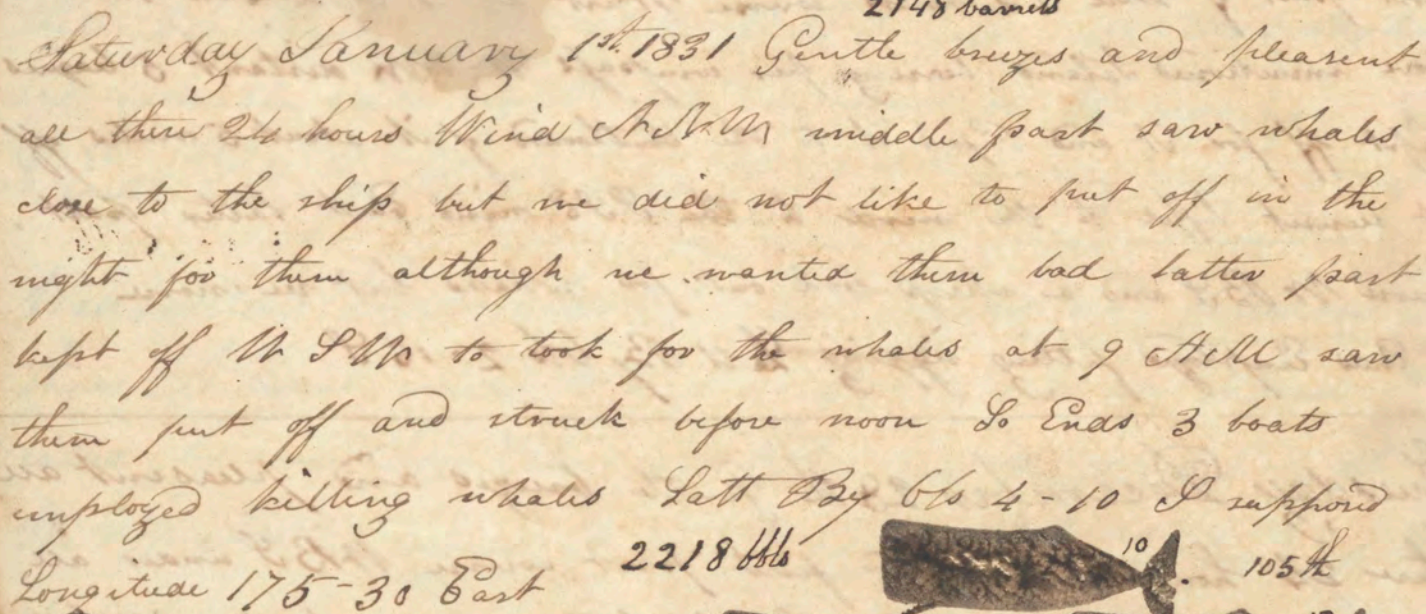 2148 barrels
Saturday January 1st 1831 Gentle breezes and pleasent
all these 24 hours Wind NNW middle part saw whales
close to the ship but we did not like to put off in the
night for them although we wanted them bad latter part
kept off WSW to look for the whales at 9 AM saw
them put off and struck before noon So Ends 3 boats
imployed killing whales Latt By Obs 4-10 S supposed
Longitude 175-30 East
2218 bbls 10 105th